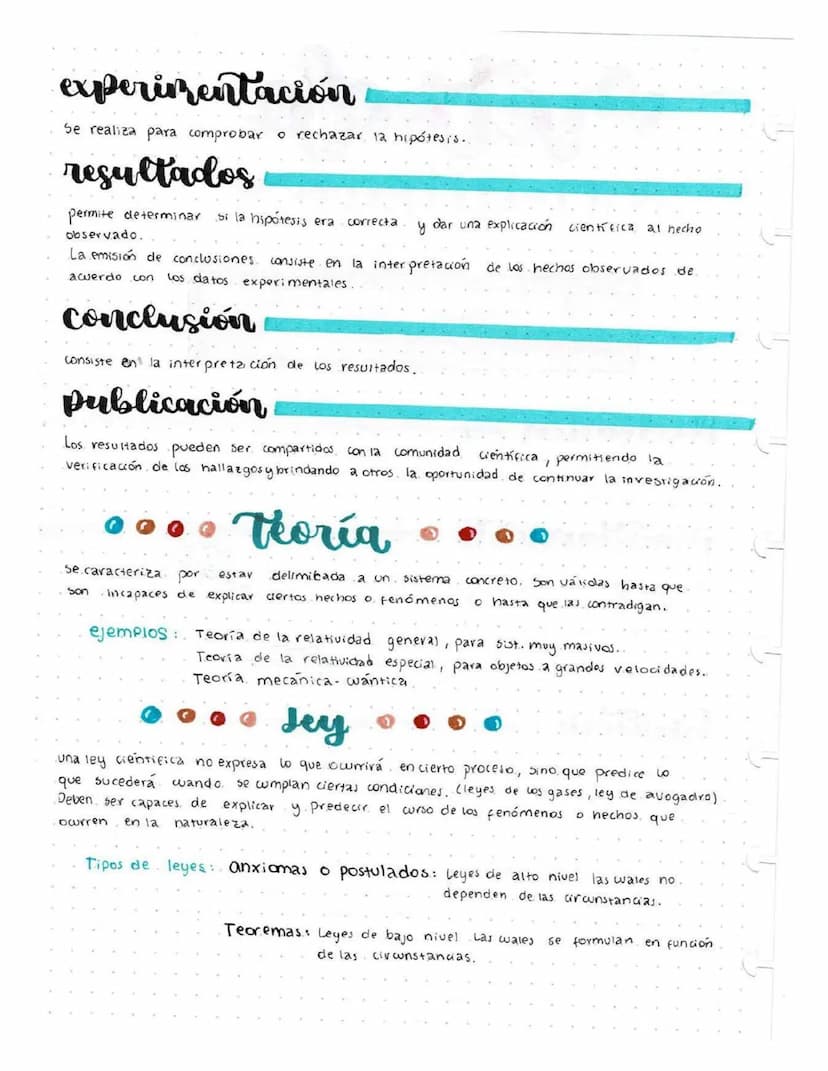 experimentación
Se realiza para comprobar o rechazar la hipótesis.
resultados
permite determinar si la hipótesis era correcta y dar una explicación científica al hecho
observado.
La emisión de conclusiones consiste en la interpretación de los hechos observados de
acuerdo con los datos experimentales.
conclusión
consiste en la interpretación de los resultados.
publicación
Los resultados pueden ser compartidos con la comunidad científica, permitiendo la
verificación de los hallazgos y brindando a otros la oportunidad de continuar la investigación.
Teoría
se caracteriza por estar delimitada a un sistema concreto, son válidas hasta que
son incapaces de explicar ciertos hechos o fenómenos o hasta que las contradigan.
ejemplos: Teoría de la relatividad general, para sist. muy masivos.
Teoría de la relatividad especial, para objetos a grandes velocidades.
Teoría mecánica-cuántica
ley
una ley científica no expresa lo que ocurrirá en cierto proceso, sino que predice lo
que sucederá cuando se cumplan ciertas condiciones. (leyes de los gases, ley de avogadro)
Deben ser capaces de explicar y predecir el curso de los fenómenos o hechos que
ocurren en la naturaleza.
Tipos de leyes: anxiomas o postulados: Leyes de alto nivel las cuales no
dependen de las circunstancias.
Teoremas: Leyes de bajo nivel las cuales se formulan en función
de las circunstancias.